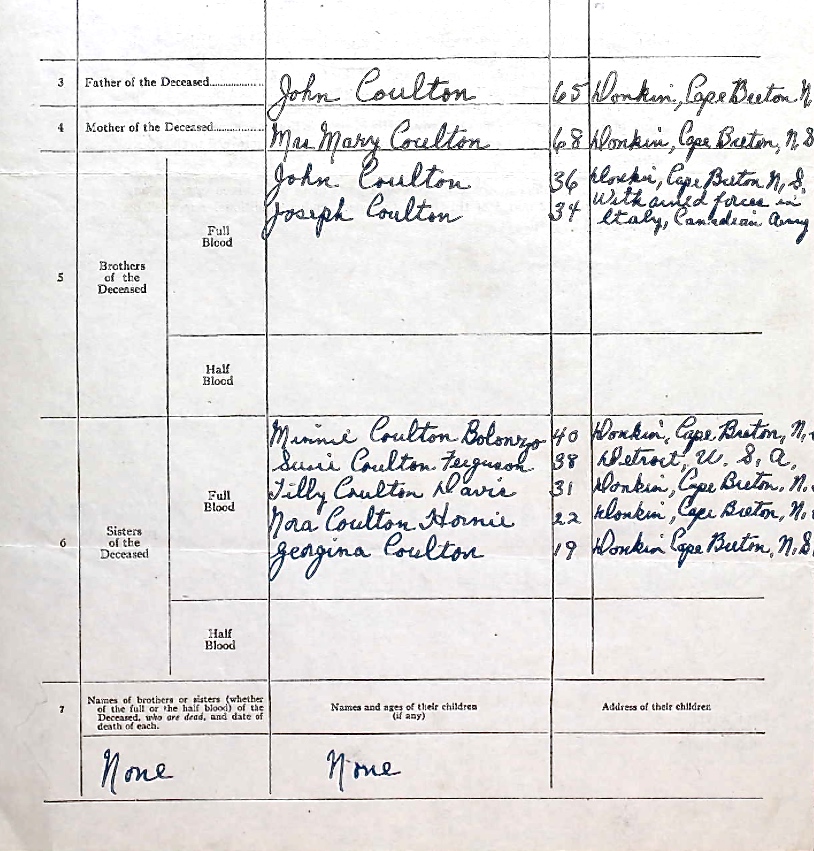 3 Father of the Deceased................ John Coulton 65 Donkin, Cape Breton N
4 Mother of the Deceased............... Mrs Mary Coulton 68 Donkin, Cape Breton, N.S
John Coulton 36 Donkin, Cape Breton N,S.
Joseph Coulton 34 With armed forces in
Italy, Canadian Army
Full
Blood
5 Brothers
of the
Deceased
Half
Blood
Minnie Coulton Bolonzo 40 Donkin, Cape Breton, N.
Susie Coulton Ferguson 38 Detroit, U. S. A.
Tilly Coulton Davis 31 Donkin, Cape Breton, N.
Nora Coulton Hornie 22 Donkin, Cape Breton, N.
Georgina Coulton 19 Donkin Cape Breton, N.S.
Full
Blood
6 Sisters
of the
Deceased
Half
Blood
7 Names of brothers or sisters (whether
of the full or the half blood) of the
Deceased, who are dead, and date of
death of each.
Names and ages of their children
(if any)
Address of their children
None None